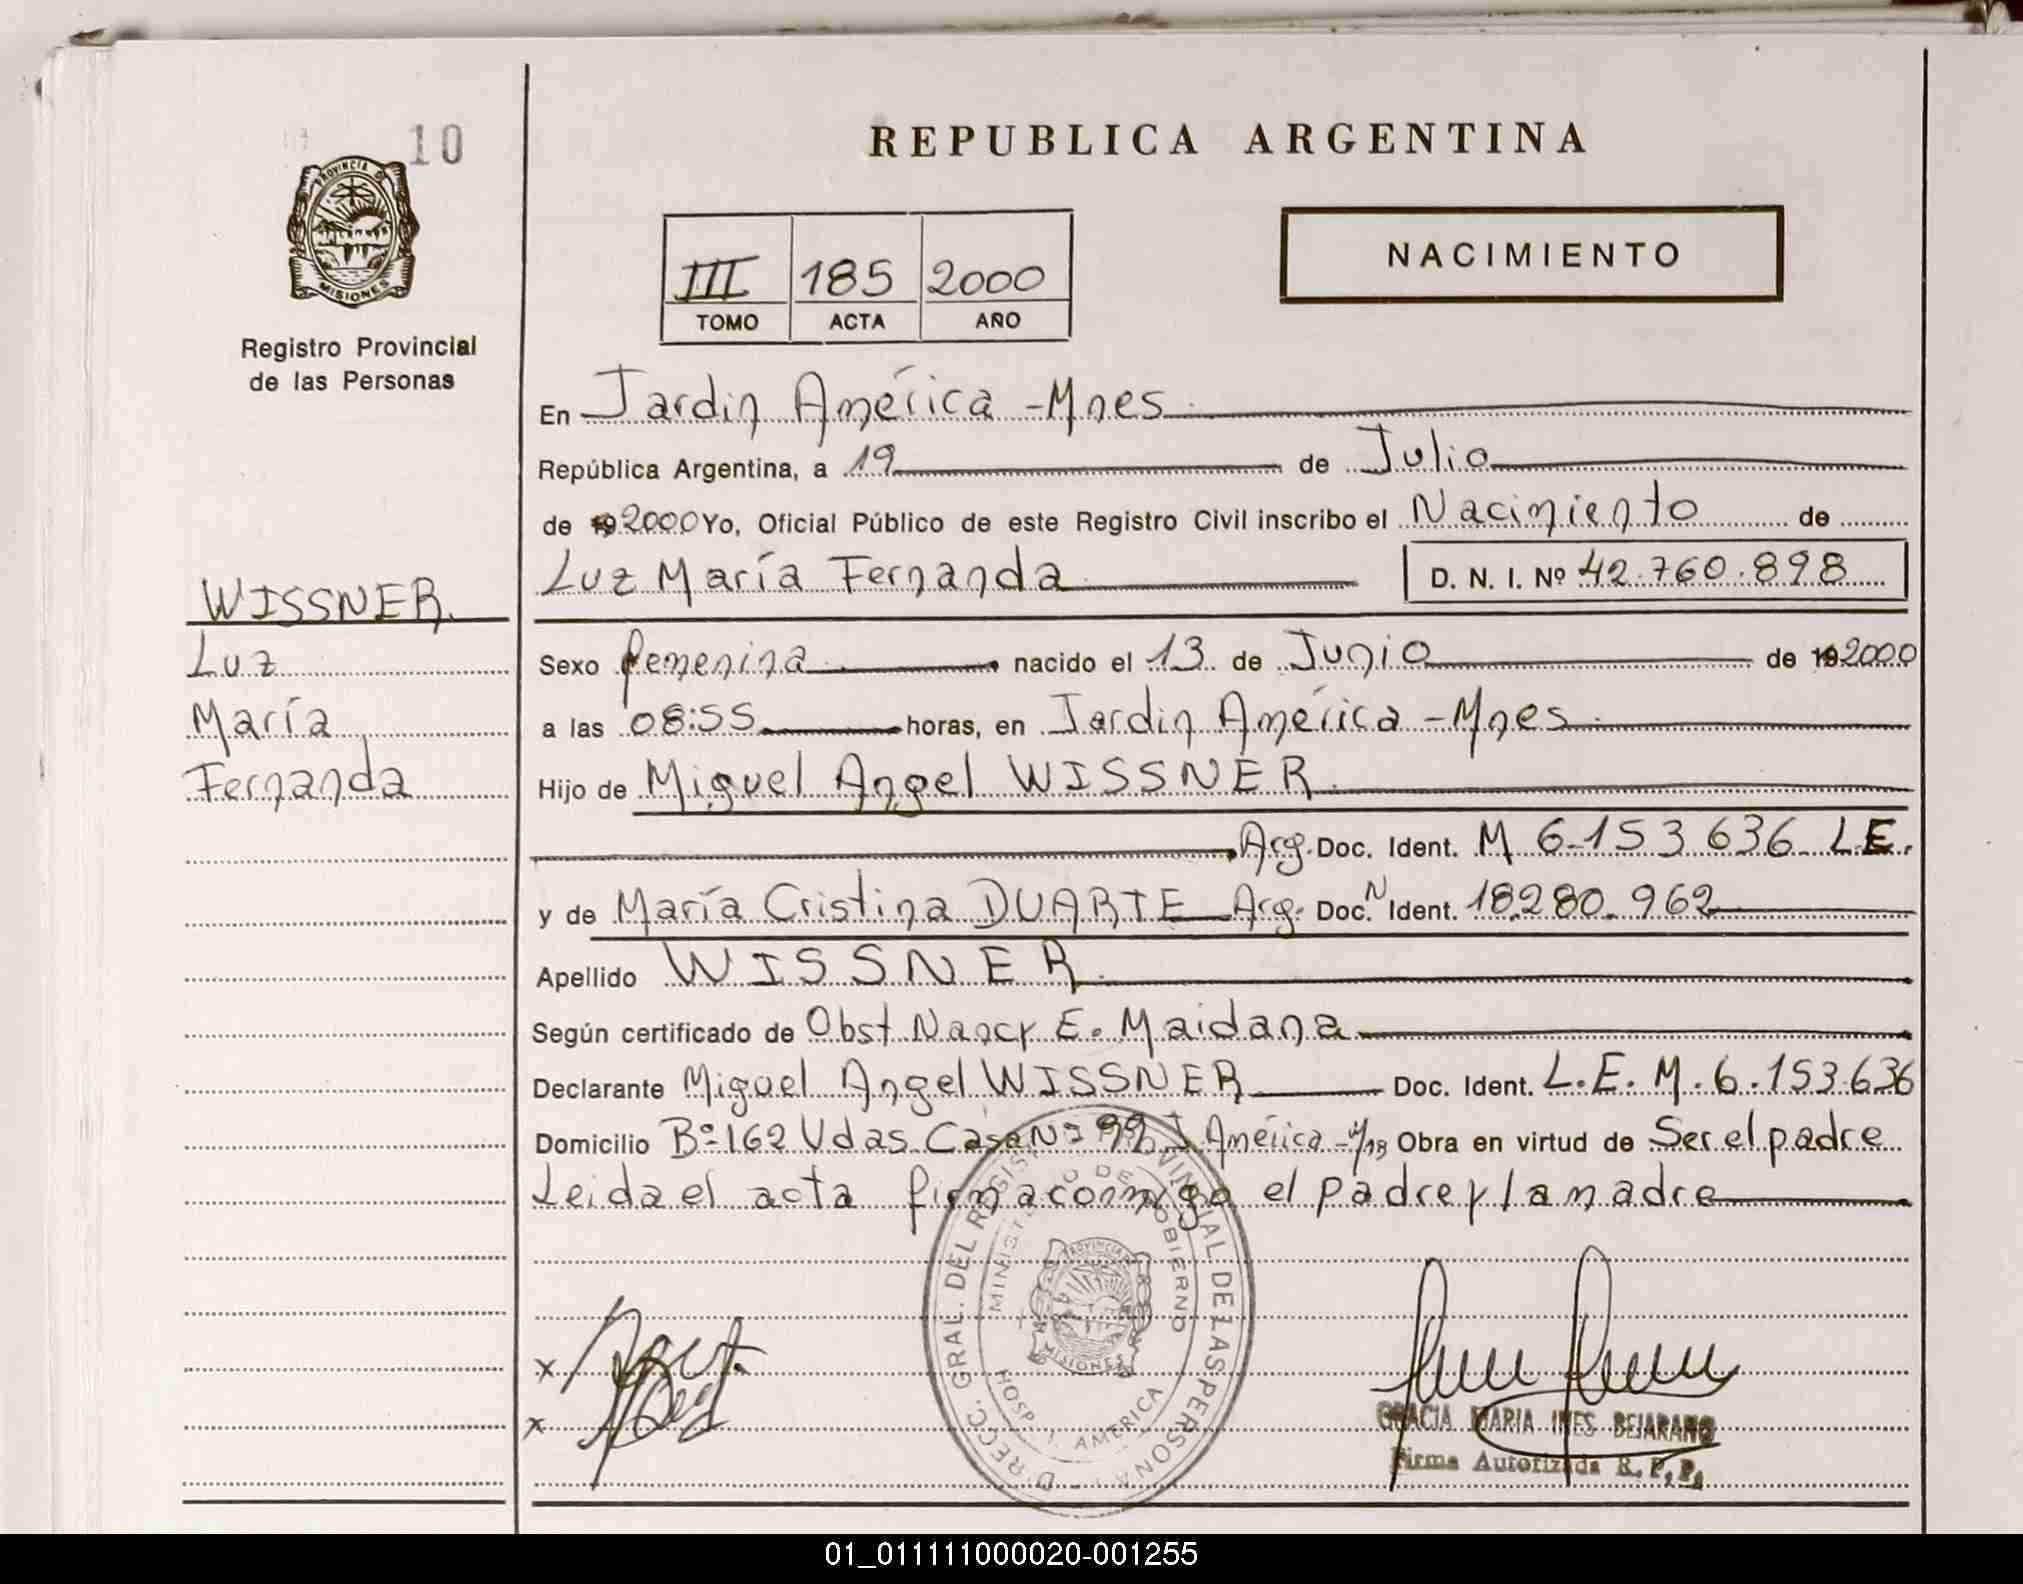 10
PROVINCIA DE
MISIONES
Registro Provincial
de las Personas
WISSNER.
Luz
María
Fernanda
REPUBLICA ARGENTINA
III 185 2000
TOMO ACTA AÑO
NACIMIENTO
En Jardin América - Mnes
República Argentina, a 19 de Julio
de 192000 Yo, Oficial Público de este Registro Civil inscribo el Nacimiento de
Luz María Fernanda D. N. I. Nº 42.760.898
Sexo femenina nacido el 13 de Junio de 192000
a las 08:55 horas, en Jardin América - Mnes
Hijo de Miguel Angel WISSNER
Arg. Doc. Ident. M 6.153.636 L.E.
y de María Cristina DUARTE Arg. Doc. N Ident. 18.280.962
Apellido WISSNER
Según certificado de Obst Nancy E. Maidana
Declarante Miguel Angel WISSNER Doc. Ident. L.E. M. 6.153.636
Domicilio Bº 162 Vdas. Casa Nº 99 J. América - Obra en virtud de Ser el padre
Leida el acta firma conmigo el padre y la madre
DIRECC. GRAL. DEL REGISTRO PROVINCIAL DE LAS PERSONAS
MINISTERIO DE GOBIERNO
PROVINCIA DE
MISIONES
HOSP. J. AMERICA
x
x
GRACIA MARIA INES BEJARANO
Firma Autorizada R. P. P.
01_011111000020-001255